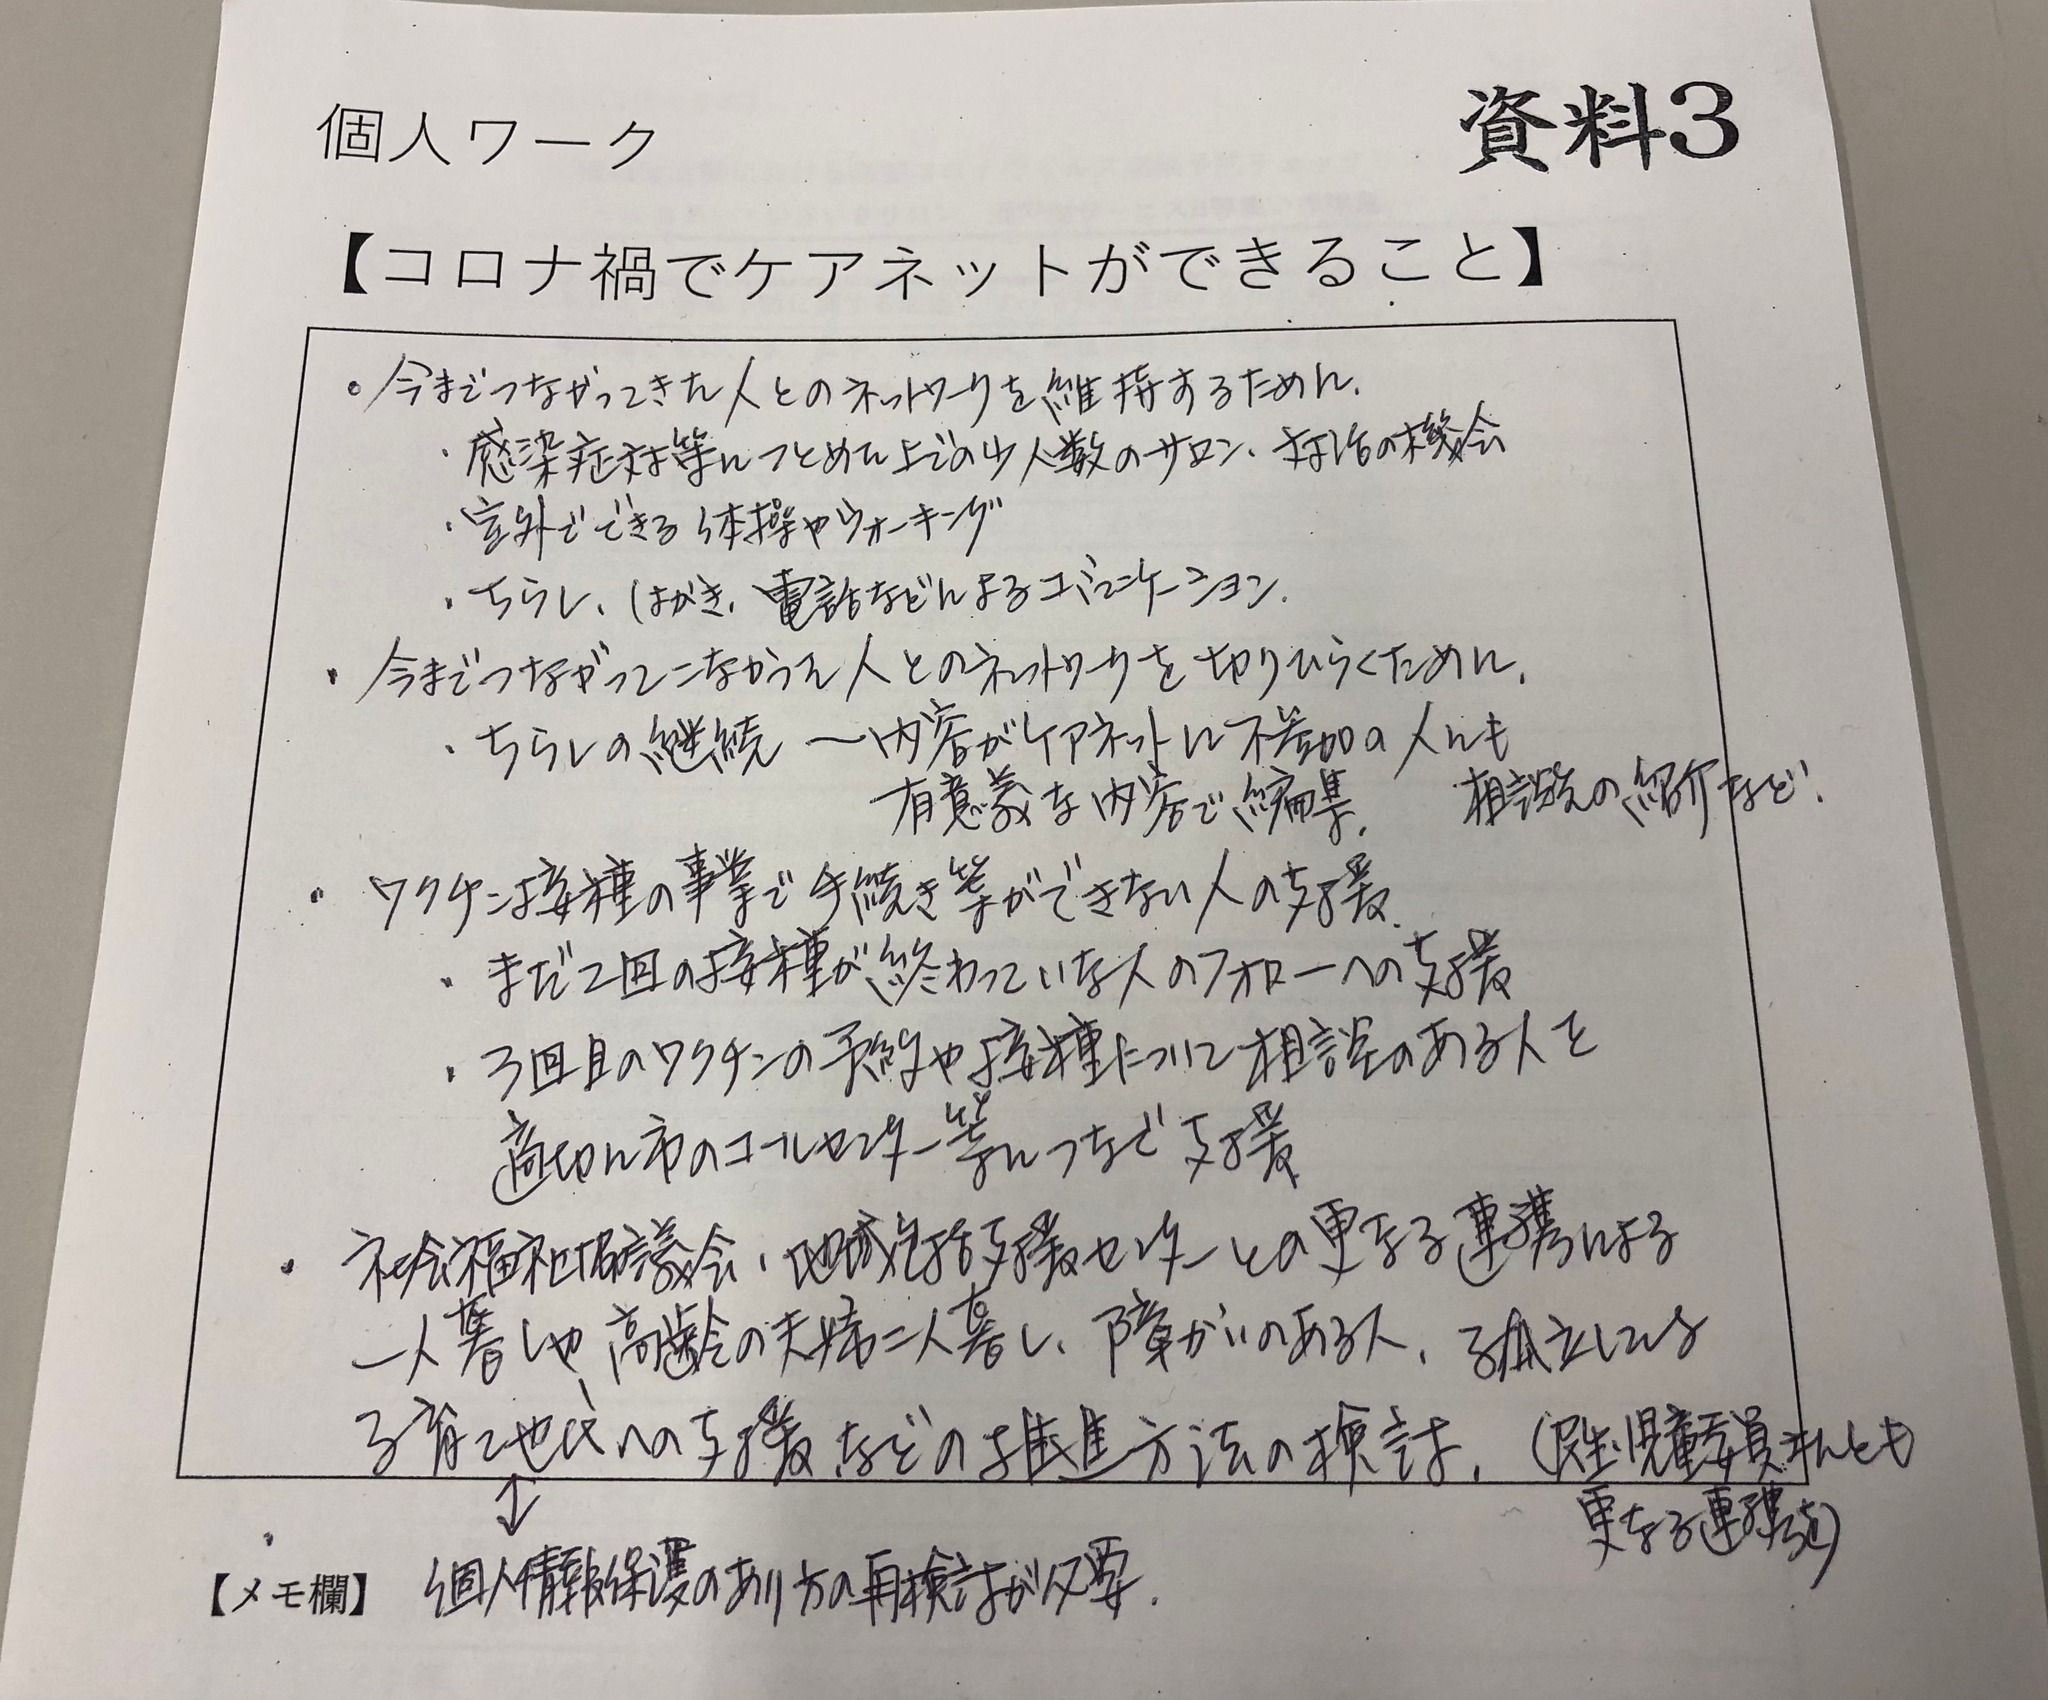 個人ワーク
資料3
【コロナ禍でケアネットができること】
・今までつながってきた人とのネットワークを維持するために、
・感染症対策につとめた上での少人数のサロン、対話の機会
・室外でできる体操やウォーキング
・ちらし、はがき、電話などによるコミュニケーション、
・今までつながってこなかった人とのネットワークを切りひらくために、
・ちらしの継続 〜内容がケアネットに不参加の人にも
有意義な内容で編集、 相談先の紹介など、
・ワクチン接種の事業で手続き等ができない人の支援、
・まだ2回の接種が終わっていな人のフォローへの支援
・3回目のワクチンの予約や接種について相談のある人を
適切に市のコールセンター等につなで支援
・社会福祉協議会、地域包括支援センターとの更なる連携による
一人暮しや高齢の夫婦二人暮し、障がいのある人、孤立している
子育て世代への支援などの推進方法の検討、(民生児童委員さんとも
更なる連携を)
↕
【メモ欄】 個人情報保護のあり方の再検討が必要、